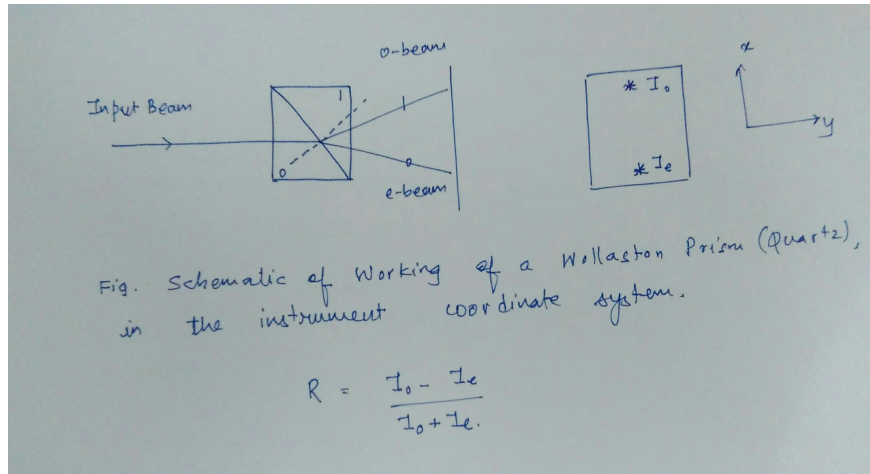 o-beam
Input Beam
e-beam
* I₀
* Ie
x
y
Fig. Schematic of Working of a Wollaston Prism (Quartz),
in the instrument coordinate system.
R = I₀ - Ie / I₀ + Ie.